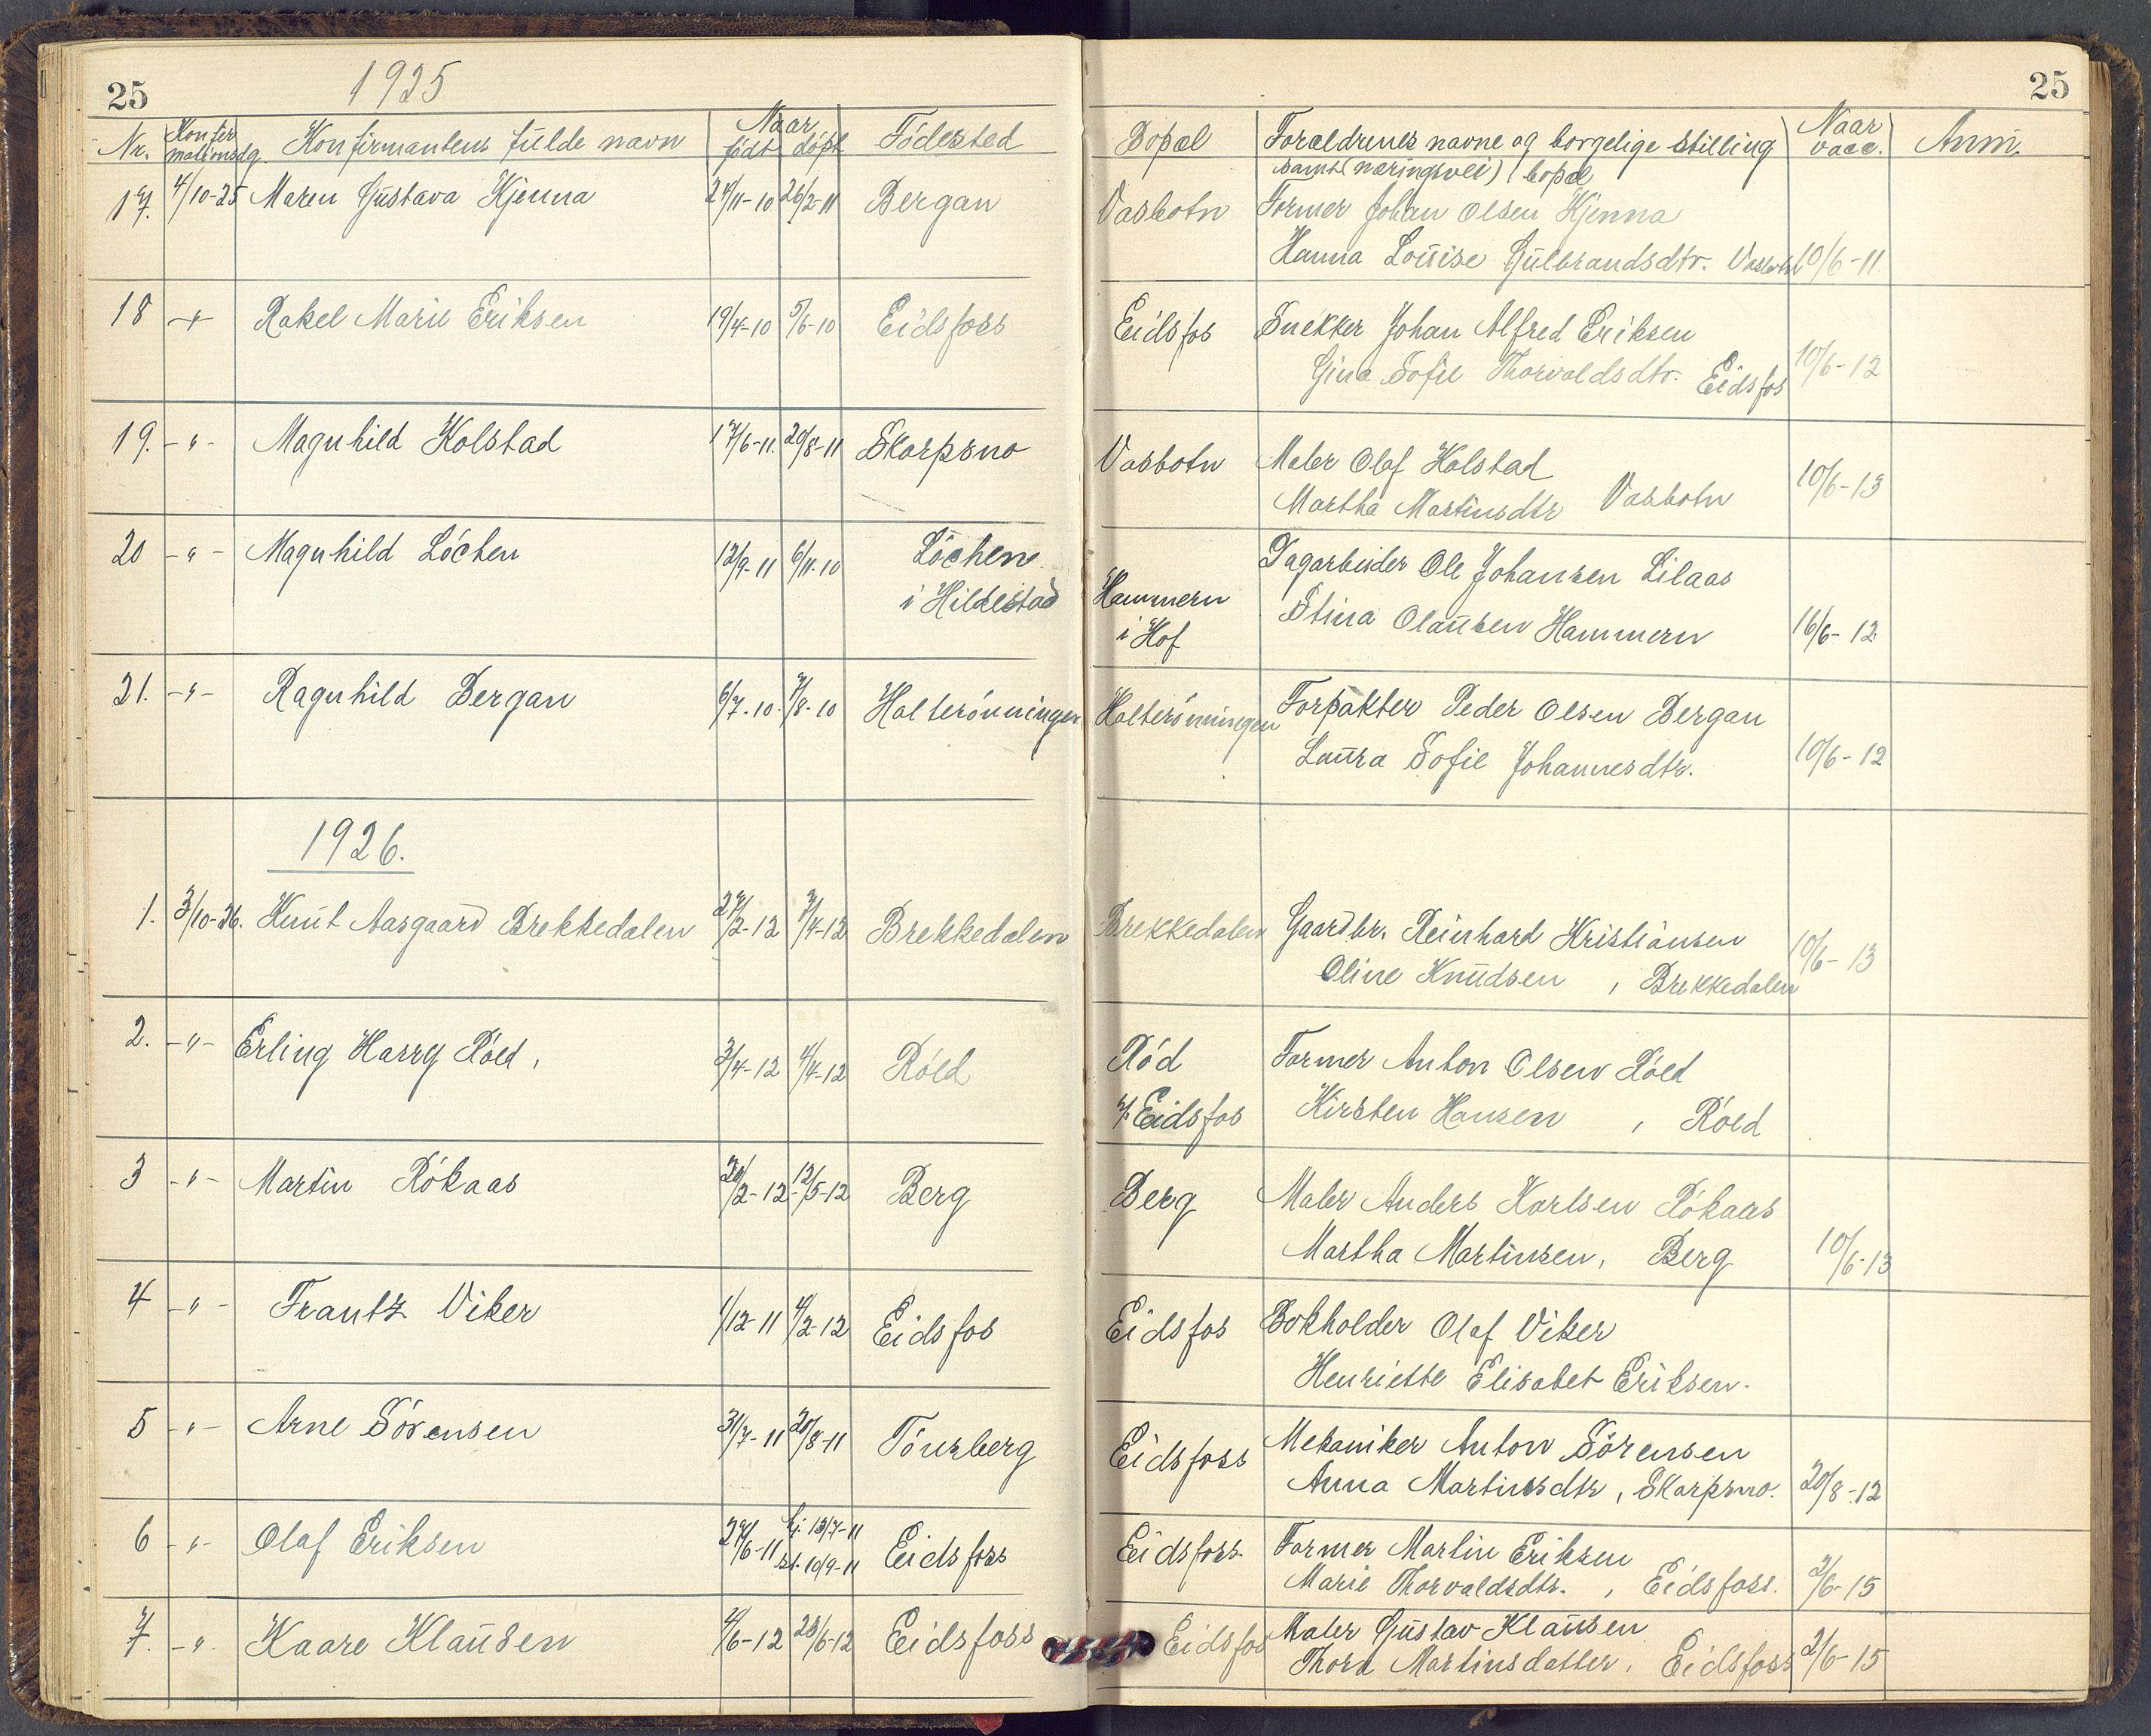 25
1925
25
Nr. Konfirmationsdg. Konfirmantens fulde navn Naar født døpt Fødested Bopæl Forældrenes navne og borgelige stilling Naar vacc. Anm.
samt (næringsvei) bopæl
17. 4/10-25 Maren Gustava Kjenna 24/11-10 26/2-11 Bergan Vasbotn Former Johan Olsen Kjenna
Hanna Louise Gulbrandsdtr. Vasbotn 10/6-11
18 -"- Rakel Marie Eriksen 19/4-10 5/6-10 Eidsfoss Eidsfos Snekker Johan Alfred Eriksen
Gina Sofie Thorvaldsdtr. Eidsfos 10/6-12
19. -"- Magnhild Kolstad 17/6-11. 20/8-11 Skarpsno Vasbotn Maler Olaf Kolstad
Martha Martinsdtr Vasbotn 10/6-13
20 -"- Magnhild Løchen 12/9-11 6/11-10 Løchen
i Hildestad Hammern
i Hof Dagarbeider Ole Johansen Lilaas
Stina Olausen Hammern 16/6-12
21. -"- Ragnhild Bergan 6/7-10. 7/8-10 Holterønningen Holterønningen Forpakter Peder Olsen Bergan
Laura Sofie Johannesdtr. 10/6-12
1926.
1. 3/10-26. Knut Aasgaard Brekkedalen 27/2-12 7/4-12 Brekkedalen Brekkedalen Gaardbr. Reinhard Kristiansen
Oline Knudsen , Brekkedalen 10/6-13
2. -"- Erling Harry Røed, 3/4-12 4/4-12 Røed Rød
Eidsfos Former Anton Olsen Røed
Kirsten Hansen , Røed
3 -"- Martin Røkaas 20/2-12 12/5-12 Berg Berg Maler Anders Karlsen Røkaas
Martha Martinsen, Berg 10/6-13
4 -"- Frantz Viker 1/12-11 4/2-12 Eidsfos Eidsfos Bokholder Olaf Viker
Henriette Elisabet Eriksen.
5 -"- Arne Sørensen 31/7-11 20/8-11 Tønsberg Eidsfoss Mekaniker Anton Sørensen
Anna Martinsdtr, Skarpsno. 20/8-12
6 -"- Olaf Eriksen 27/6-11 hj. 13/7-11
st. 10/9-11 Eidsfoss Eidsfoss. Former Martin Eriksen
Marie Thorvaldsdtr. , Eidsfoss. 2/6-15
7. -"- Kaare Klausen 4/6-12 23/6-12 Eidsfoss Eidsfos Maler Gustav Klausen
Thora Martinsdatter, Eidsfoss 2/6-15